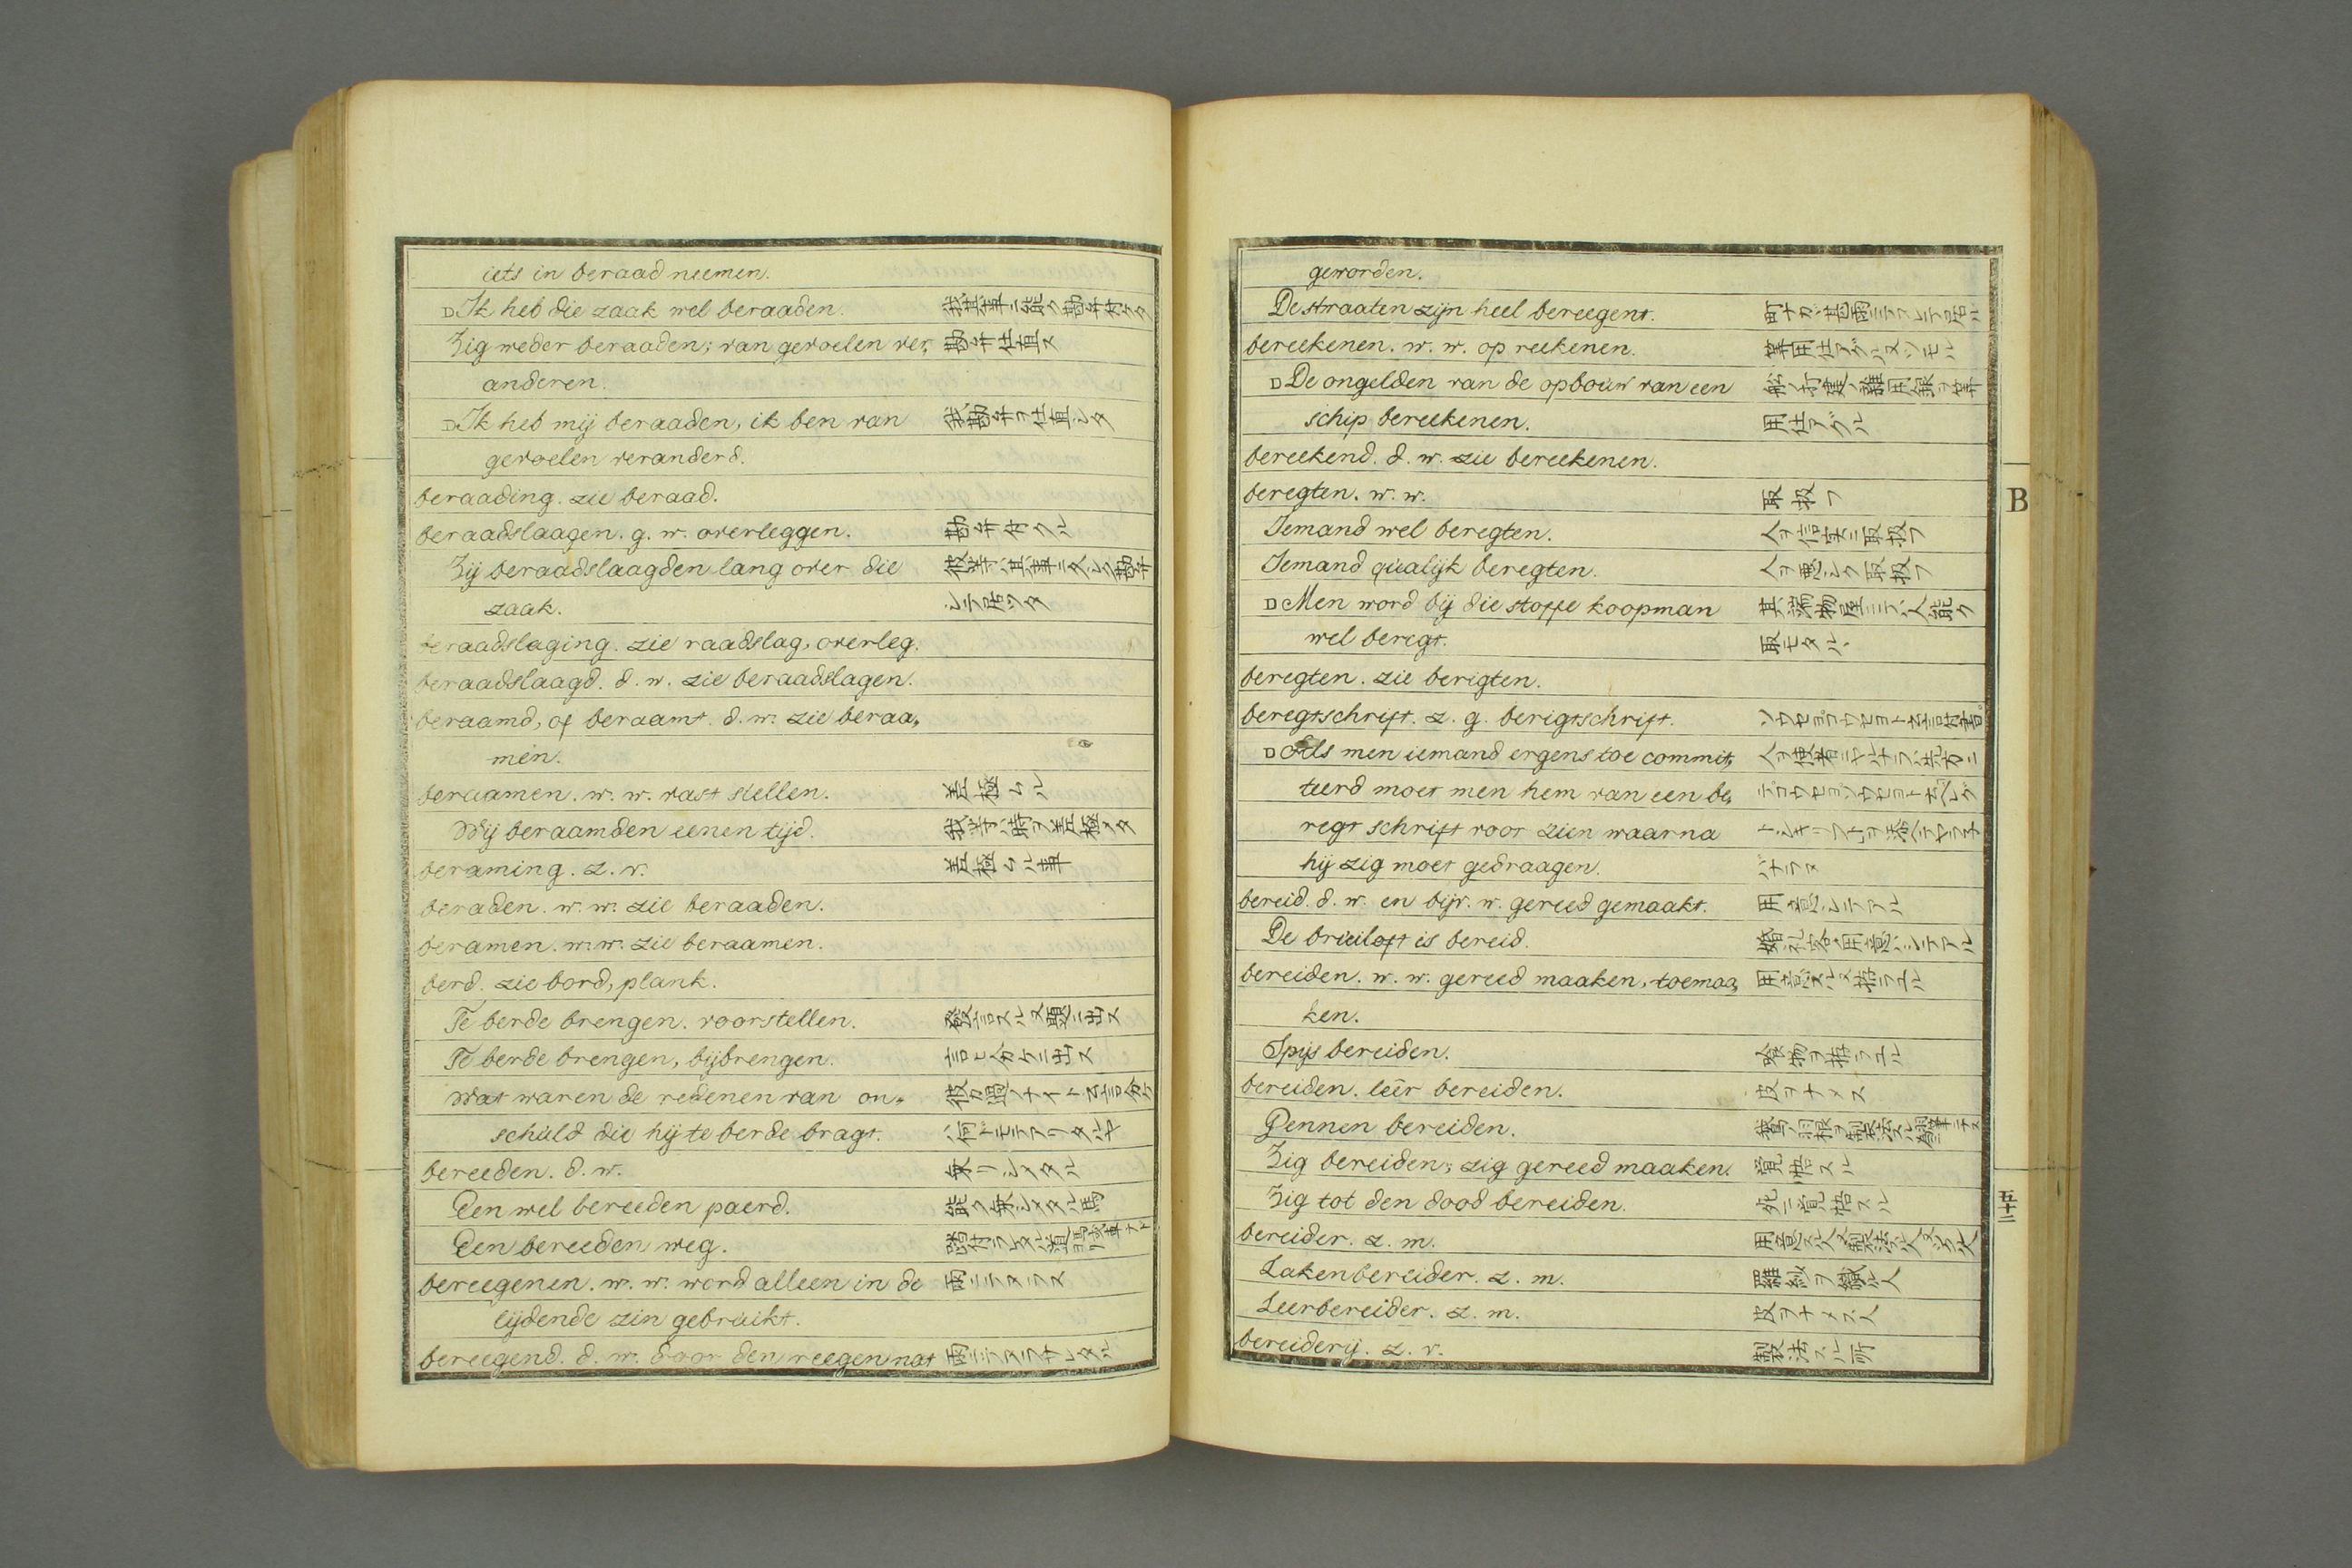 iets in beraad neemen.
Ik heb die zaak wel beraaden. 我其事ニ能ク勘弁付ケタ
Zig weder beraaden; van gevoelen ver, 勘弁仕直ス
anderen.
Ik heb mij beraaden, ik ben van 我勘弁ヲ仕直シタ
gevoelen veranderd.
beraading. zie beraad.
beraadslaagen. g. w. overleggen. 勘弁付クル
Zij beraadslaagden lang over die
zaak. シテ居ツタ
beraadslaging. zie raadslag, overleg.
beraadslaagd. d. w. zie beraadslagen.
beraamd, of beraamt. d. w. zie beraa,
men.
beraamen. w. w. vast stellen. 差極ムル
Wij beraamden eenen tijd. 我等ハ時ヲ差極メタ
beraming. z. v. 差極ムル事
beraden. w. w. zie beraaden.
beramen. w. w. zie beraamen.
berd. zie bord, plank.
Te berde brengen. voorstellen. 發言スル又題ニ出ス
Te berde brengen, bijbrengen. 言ヒ分ケニ出ス
Wat waren de redenen van on,
schuld die hij te berde bragt.
bereeden. d. w. 乗リシメタル
Een wel bereeden paerd. 能ク乗シメタル馬
Een bereeden weg.
bereegenen. w. w. word alleen in de 雨ニテヌラス
lijdende zin gebruikt.
bereegend. d. w. door den reegen nat 雨ニテヌラサレタル
geworden.
De straaten zijn heel bereegent.
bereekenen. w. w. op reekenen. 算用仕アグル又ツモル
De ongelden van de opbouw van een 船ノ打建ノ雜用銀ヲ算
schip bereekenen. 用仕アグル
bereekend. d. w. zie bereekenen.
beregten. w. w. 取扱フ
Iemand wel beregten. 人ヲ信実ニ取扱フ
Iemand qualijk beregten. 人ヲ悪シク取扱フ
Men word bij die stoffe koopman
wel beregt.
beregten. zie berigten.
beregtschrift. z. g. berigtschrift.
Als men iemand ergens toe commit,
teerd moet men hem van een be,
regt schrift voor zien waarna
hij zig moet gedraagen. バナラヌ
bereid. d. w. en bijv. w. gereed gemaakt. 用意シテアル
De bruiloft is bereid.
bereiden. w. w. gereed maaken, toemaa, 用意スル又拵ラユル
ken.
Spijs bereiden. 喰物ヲ拵ラユル
bereiden. leêr bereiden. 皮ヲナメス
Pennen bereiden.
Zig bereiden; zig gereed maaken. 覚悟スル
Zig tot den dood bereiden. 死ニ覚悟スル
bereider. z. m.
Lakenbereider. z. m. 羅紗ヲ織ル人
Leerbereider. z. m. 皮ヲナメス人
bereiderij. z. v. 製法スル所
B
五十二